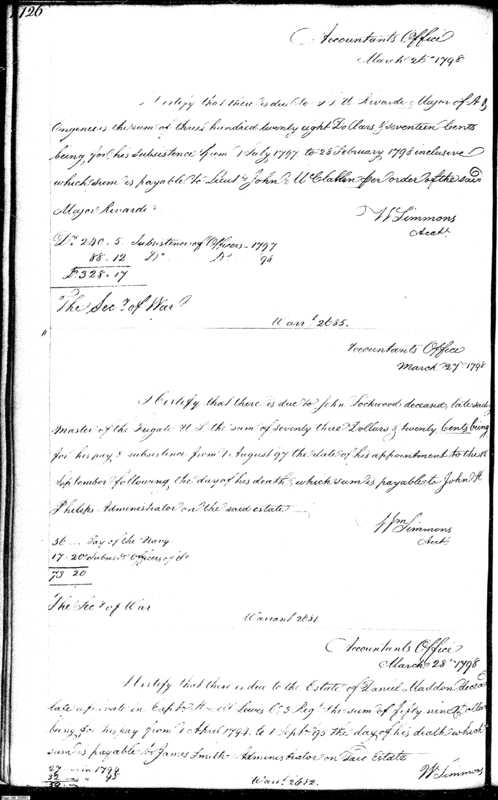 126
Accountants Office
March 26th 1798
I Certify that there is due to J. J. U. Rivardi Major of A &
Engineers the sum of three hundred twenty eight Dollars & seventeen Cents
being for his Subsistence from 1 July 1797 to 28 February 1798 inclusive
which sum is payable to Lieut John McClallen per order of the said
Major Rivardi
W Simmons
Acct
Dr 240.5 Subsistence of Officers - 1797
88.12 Do Do 98
$ 328.17
The Secy of War
Warrt 2635.
Accountants Office
March 27th 1798
I Certify that there is due to John Lockwood deceased, late
Master of the Frigate U S the sum of seventy three Dollars & twenty Cents being
for his pay & subsistence from 1 August 97 the date of his appointment to the
September following, the day of his death, which sum is payable to John H
Philips Administrator on the said estate
Wm Simmons
Acct
56 .. Pay of the Navy
17.20 Subsce Officers of do
73 20
The Secy of War
Warrant 2631.
Accountants Office
March 28th 1798
I Certify that there is due to the Estate of Daniel Maddon deceased
late a private in Capt Lowes Co 3 Regt the sum of fifty nine Dollars
being for his pay from 1 April 1794 to 1 Sept 95 the day of his death which
sum is payable to James Smith Administrator on said Estate
W Simmons
27 " in 1794
32 " " 95
59
Warrt 2632.